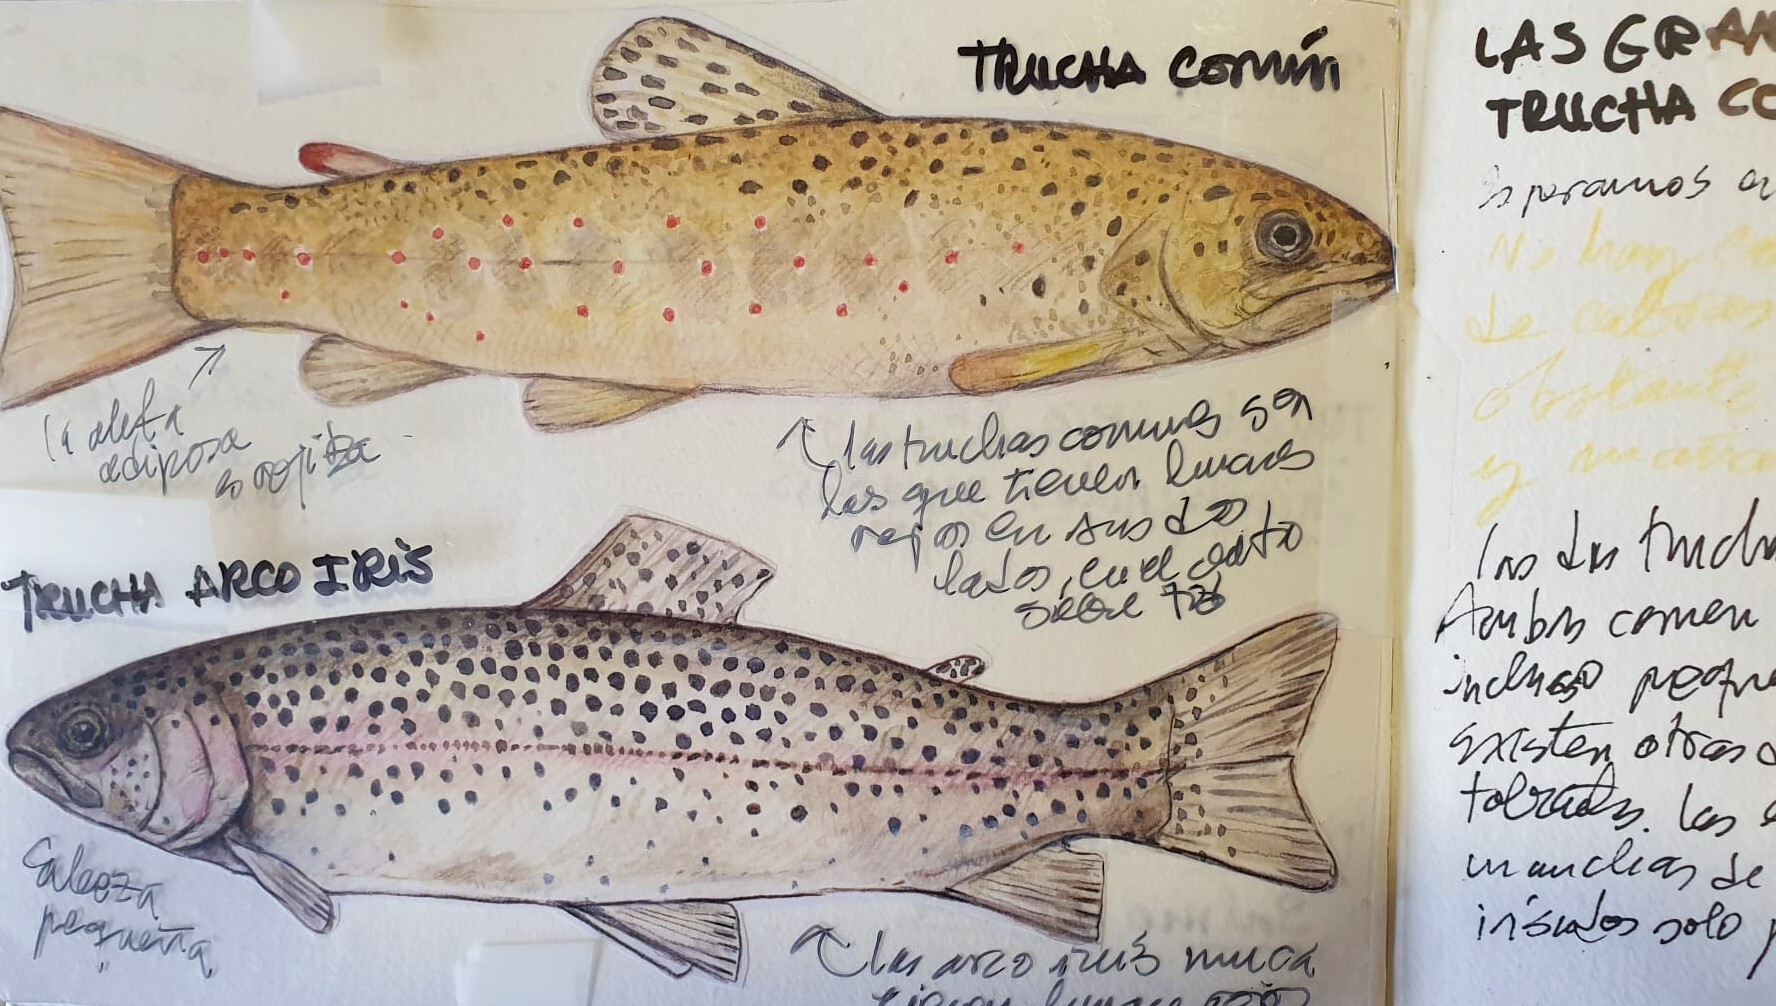 TRUCHA COMÚN
la aleta
adiposa
es rojiza
las truchas comunes son
las que tienen lunares
rojos en sus dos
lados, en el
TRUCHA ARCO IRIS
Cabeza
pequeña
las arco iris nunca
tienen lunares rojos
LAS GRAN
TRUCHA CO
Esperamos
No hay
de
obstante
y
las dos truch
Ambas comen
incluso peque
existen otras
las
manchas de
irisados solo p